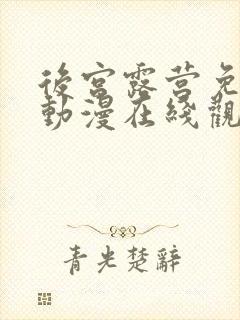 後宮露营免
動漫在綫觀
青光楚辭